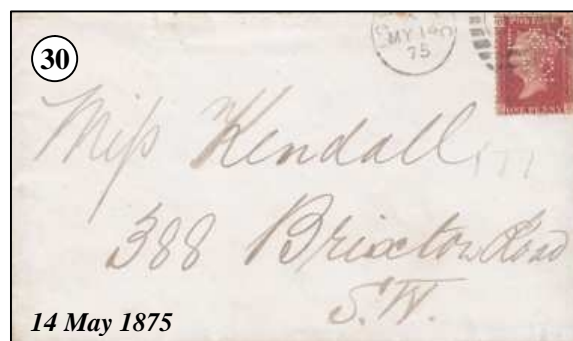 30
MY 14
75
POSTAGE
ONE PENNY
Miss Kendall
388 Brixton Road
S.W.
14 May 1875